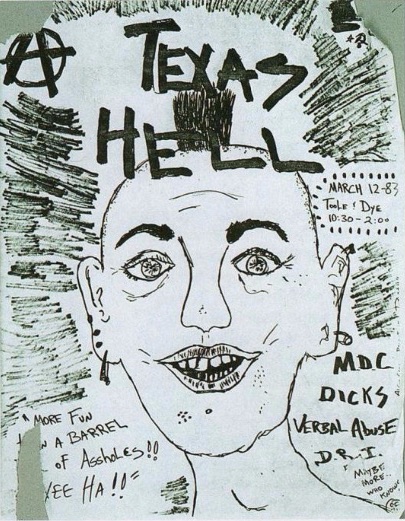 TEXAS
HELL
MARCH 12-83
TOOL & DYE
10:30 - 2:00
MDC
DICKS
VERBAL ABUSE
D.R.I.
MAYBE
MORE..
WHO KNOWS
"MORE FUN
A BARREL
OF ASSHOLES!!
YEE HA!!"